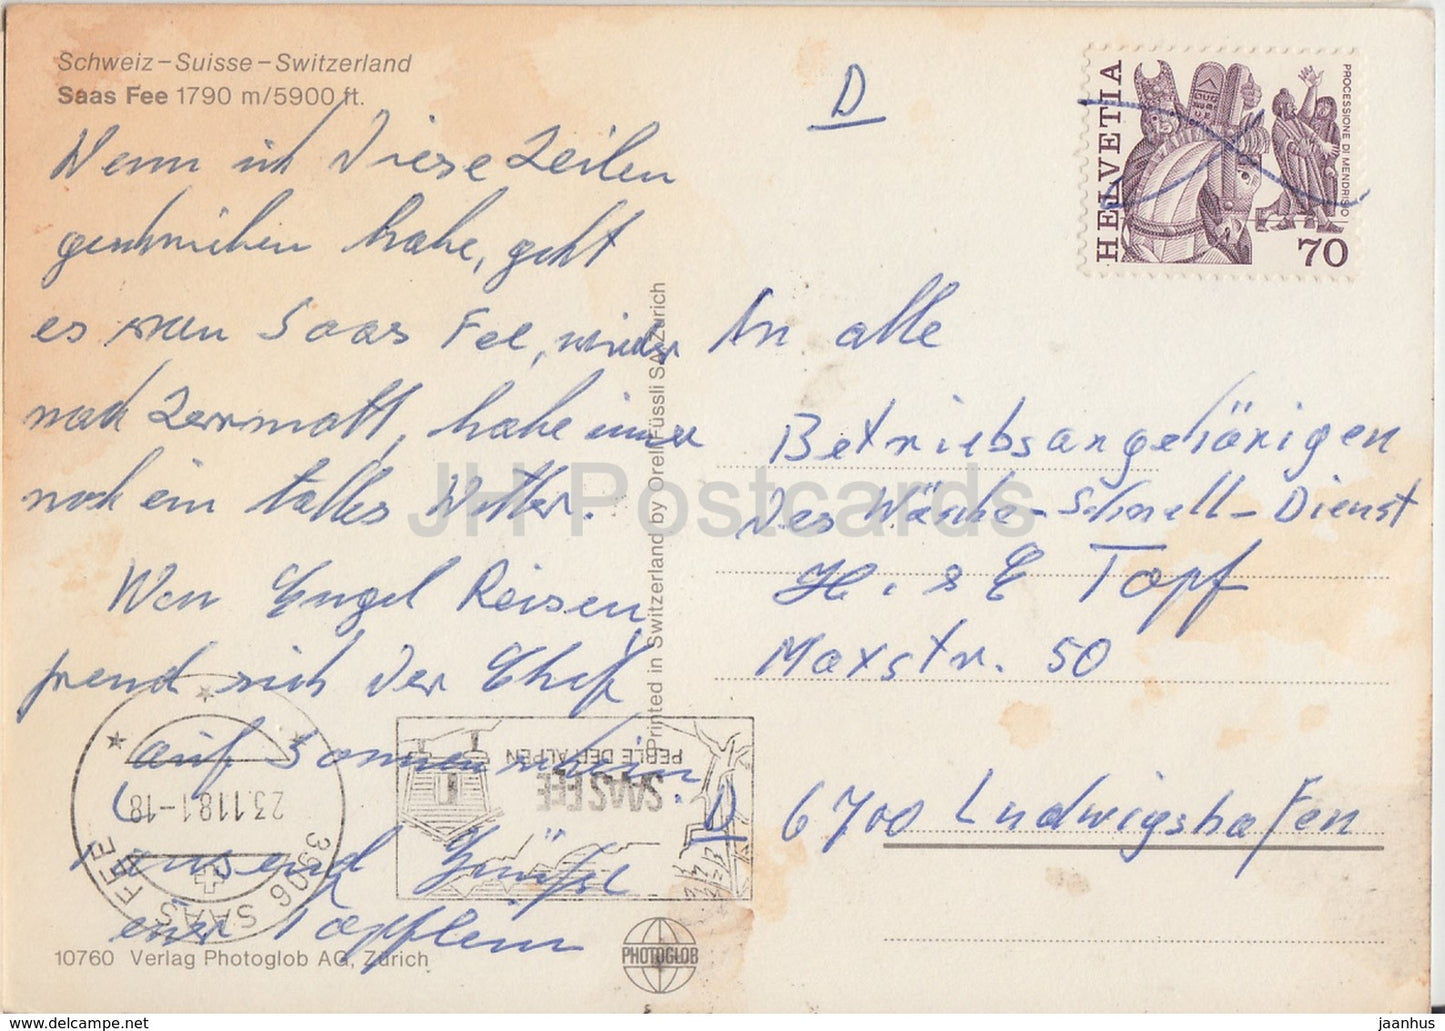 Schweiz – Suisse – Switzerland
Saas Fee 1790 m/5900 ft.
Wenn ich diese Zeilen
geschrieben habe, geht
es von Saas Fee, wieder
nach Zermatt, habe immer
noch ein tolles Wetter.
Wen Engel Reisen,
freud sich der Chef
auf Sonnenschein.
Tausend Grüße
euer Töpflein
10760 Verlag Photoglob AG, Zürich
Printed in Switzerland by Orell Füssli SA Zürich
PHOTOGLOB
s
3906 SAAS FEE
23.11.81-18
SAAS FEE
PERLE DER ALPEN
D
HELVETIA
PROCESSIONE DI MENDRISIO
70
An alle
Betriebsangehörigen
des Wäsche-Schnell-Dienst
H. & E Topf
Maxstr. 50
D 6700 Ludwigshafen
JH Postcards
https://www.delcampe.net
jaanhus